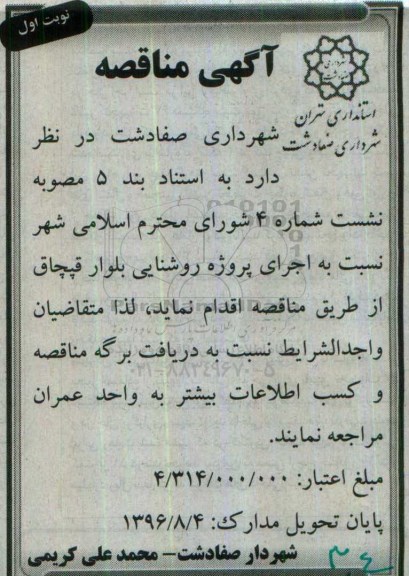 نوبت اول
آگهی مناقصه
استانداری تهران
شهرداری صفادشت
شهرداری صفادشت در نظر
دارد به استناد بند ۵ مصوبه
نشست شماره ۴ شورای محترم اسلامی شهر
نسبت به اجرای پروژه روشنایی بلوار قپچاق
از طریق مناقصه اقدام نماید، لذا متقاضیان
واجدالشرایط نسبت به دریافت برگه مناقصه
و کسب اطلاعات بیشتر به واحد عمران
مراجعه نمایند.
مبلغ اعتبار: ۴/۳۱۴/۰۰۰/۰۰۰
پایان تحویل مدارک: ۱۳۹۶/۸/۴
شهردار صفادشت- محمد علی کریمی
۰۲۱-۸۸۳۴۹۶۷۰-۵